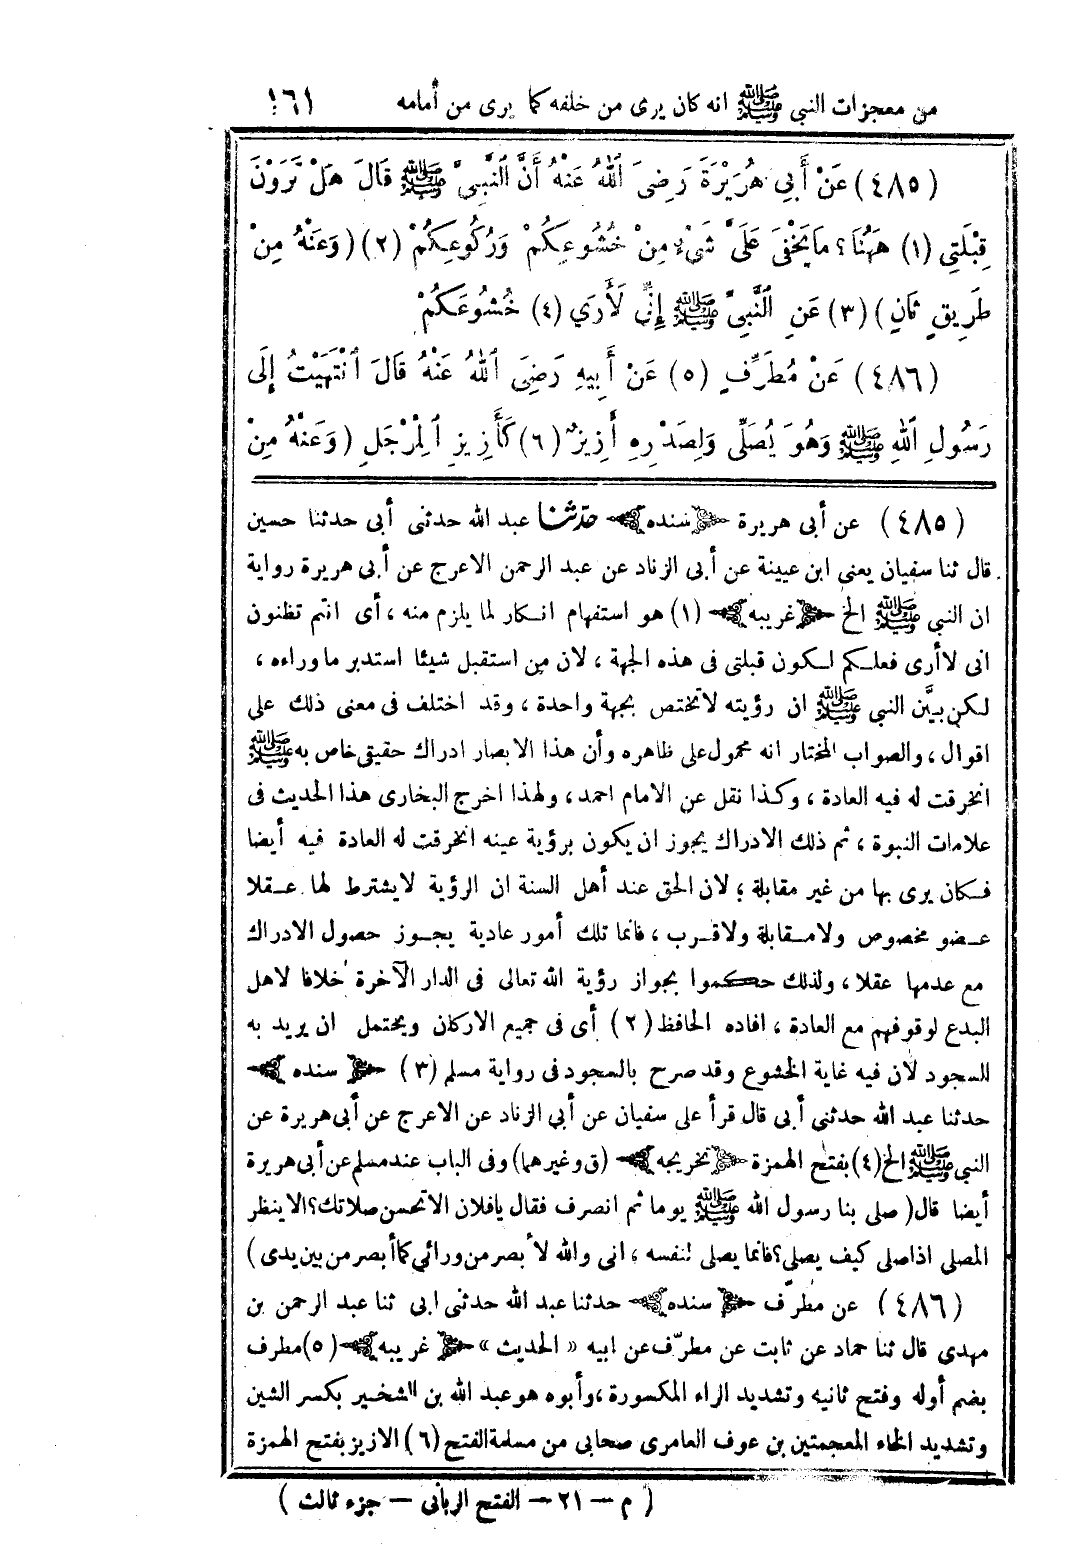 من معجزات النبي ﷺ انه كان يرى من خلفه كما يرى من أمامه ١٦١
(٤٨٥) عَنْ أَبِي هُرَيْرَةَ رَضِىَ اللهُ عَنْهُ أَنَّ النَّبِيَّ ﷺ قَالَ هَلْ تَرَوْنَ
قِبْلَتِي (١) هٰهُنَا؟ مَا يَخْفَى عَلَيَّ شَيْءٌ مِنْ خُشُوعِكُمْ وَرُكُوعِكُمْ (٢) (وَعَنْهُ مِنْ
طَرِيقٍ ثَانٍ) (٣) عَنِ النَّبِيِّ ﷺ إِنِّي لَأَرَي (٤) خُشُوعَكُمْ
(٤٨٦) عَنْ مُطَرِّفٍ (٥) عَنْ أَبِيهِ رَضِىَ اللهُ عَنْهُ قَالَ انْتَهَيْتُ إِلَى
رَسُولِ اللهِ ﷺ وَهُوَ يُصَلِّي وَلِصَدْرِهِ أَزِيزٌ (٦) كَأَزِيزِ الْمِرْجَلِ (وَعَنْهُ مِنْ
(٤٨٥) عن أبى هريرة ﴿سنده﴾ حدّثنا عبد الله حدثنى أبى حدثنا حسين
قال ثنا سفيان يعنى ابن عيينة عن أبى الزناد عن عبد الرحمن الاعرج عن أبى هريرة رواية
ان النبي ﷺ الخ ﴿غريبه﴾ (١) هو استفهام انكار لما يلزم منه، أى انتم تظنون
انى لاأرى فعلكم لكون قبلتى فى هذه الجهة، لان من استقبل شيئا استدبر ماوراءه،
لكن بيَّن النبي ﷺ ان رؤيته لاتختص بجهة واحدة، وقد اختلف فى معنى ذلك على
اقوال، والصواب المختار انه محمول على ظاهره وأن هذا الابصار ادراك حقيقى خاص به ﷺ
انخرقت له فيه العادة، وكذا نقل عن الامام احمد، ولهذا اخرج البخارى هذا الحديث فى
علامات النبوة، ثم ذلك الادراك يجوز ان يكون برؤية عينه انخرقت له العادة فيه أيضا
فكان يرى بها من غير مقابلة؛ لان الحق عند أهل السنة ان الرؤية لايشترط لها عقلا
عضو مخصوص ولامقابلة ولاقرب، فانما تلك أمور عادية يجوز حصول الادراك
مع عدمها عقلا، ولذلك حكموا بجواز رؤية الله تعالى فى الدار الآخرة خلافا لاهل
البدع لوقوفهم مع العادة، افاده الحافظ (٢) أى فى جميع الاركان ويحتمل ان يريد به
السجود لان فيه غاية الخشوع وقد صرح بالسجود فى رواية مسلم (٣) ﴿سنده﴾
حدثنا عبد الله حدثنى أبى قال قرأ على سفيان عن أبي الزناد عن الاعرج عن أبى هريرة عن
النبى ﷺ الخ (٤) بفتح الهمزة ﴿تخريجه﴾ (ق وغيرهما) وفى الباب عند مسلم عن أبى هريرة
أيضا قال (صلى بنا رسول الله ﷺ يوما ثم انصرف فقال يافلان الاتحسن صلاتك؟ الاينظر
المصلى اذا صلى كيف يصلى؟ فانما يصلى لنفسه، انى والله لأبصر من ورائي كما أبصر من بين يدى)
(٤٨٦) عن مطرّف ﴿سنده﴾ حدثنا عبد الله حدثنى ابى ثنا عبد الرحمن بن
مهدى قال ثنا حماد عن ثابت عن مطرّف عن ابيه «الحديث» ﴿غريبه﴾ (٥) مطرف
بضم أوله وفتح ثانيه وتشديد الراء المكسورة، وأبوه هو عبد الله بن الشخير بكسر الشين
وتشديد الخاء المعجمتين بن عوف العامرى صحابى من مسلمة الفتح (٦) الازيز بفتح الهمزة
(م — ٢١ — الفتح الربانى — جزء ثالث)